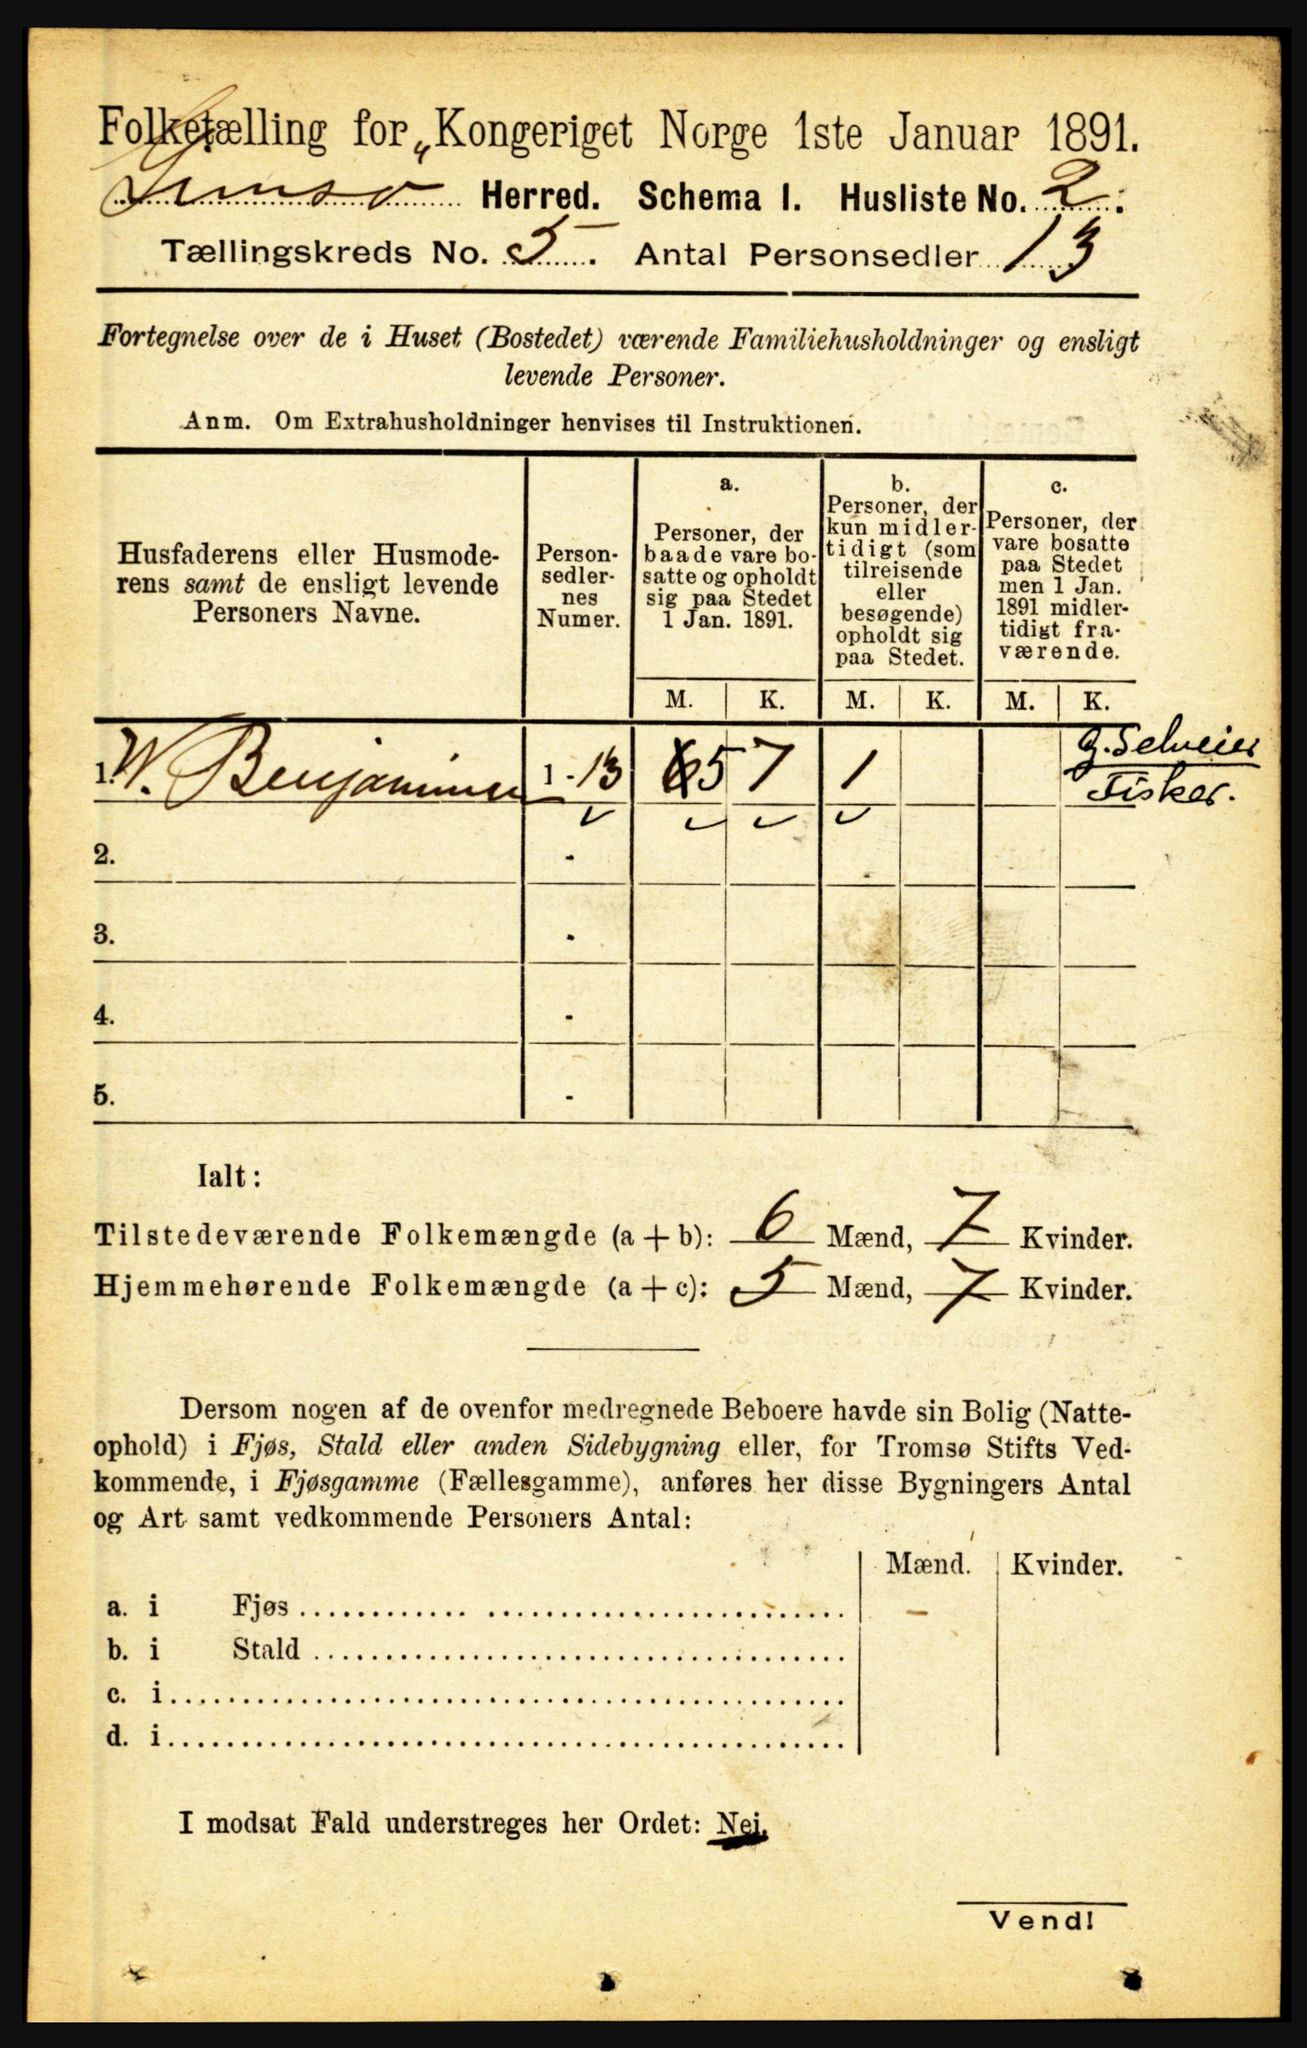 Folketælling for Kongeriget Norge 1ste Januar 1891.
Gimsø Herred. Schema I. Husliste No. 2.
Tællingskreds No. 5. Antal Personsedler 13
Fortegnelse over de i Huset (Bostedet) værende Familiehusholdninger og ensligt
levende Personer.
Anm. Om Extrahusholdninger henvises til Instruktionen.
Husfaderens eller Husmode-
rens samt de ensligt levende
Personers Navne.
Person-
sedler-
nes
Numer.
a.
Personer, der
baade vare bo-
satte og opholdt
sig paa Stedet
1 Jan. 1891.
b.
Personer, der
kun midler-
tidigt (som
tilreisende
eller
besøgende)
opholdt sig
paa Stedet.
c.
Personer, der
vare bosatte
paa Stedet
men 1 Jan.
1891 midler-
tidigt fra-
værende.
M. K. M. K. M. K.
1. W. Benjaminsen 1 - 13 6 5 7 1
G. Selveier
Fisker.
2. -
3. -
4. -
5. -
Ialt:
Tilstedeværende Folkemængde (a + b): 6 Mænd, 7 Kvinder.
Hjemmehørende Folkemængde (a + c): 5 Mænd, 7 Kvinder.
Dersom nogen af de ovenfor medregnede Beboere havde sin Bolig (Natte-
ophold) i Fjøs, Stald eller anden Sidebygning eller, for Tromsø Stifts Ved-
kommende, i Fjøsgamme (Fællesgamme), anføres her disse Bygningers Antal
og Art samt vedkommende Personers Antal:
Mænd. Kvinder.
a. i Fjøs
b. i Stald
c. i
d. i
I modsat Fald understreges her Ordet: Nei.
Vend!